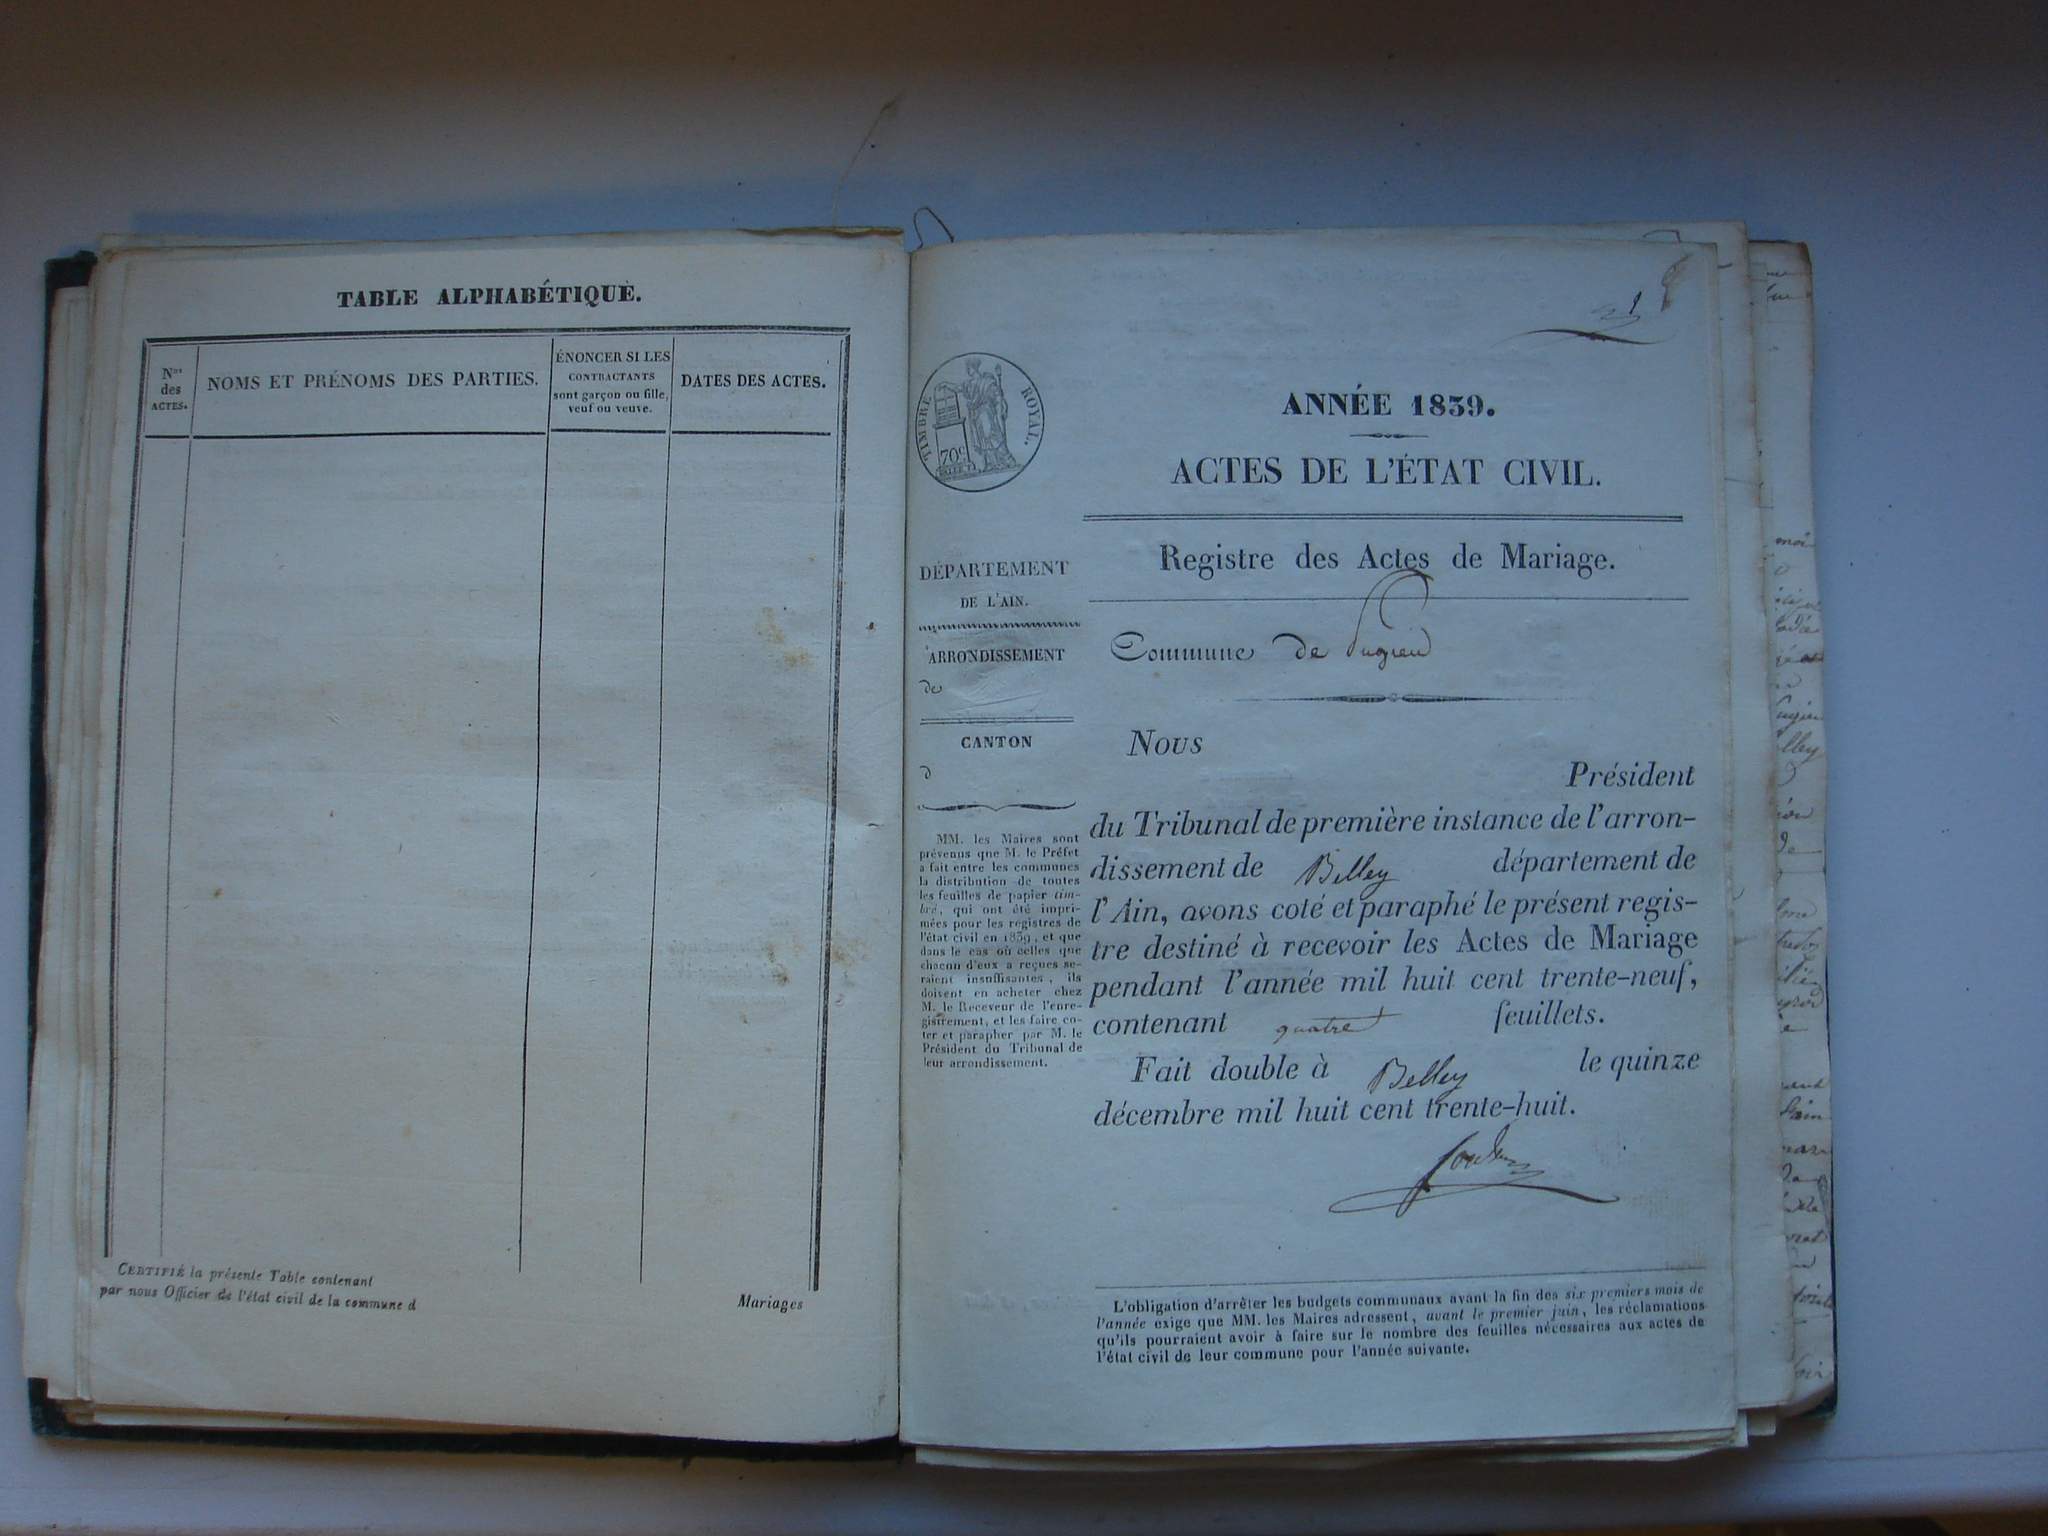 TABLE ALPHABÉTIQUE.
Nos
des
ACTES.
NOMS ET PRÉNOMS DES PARTIES.
ÉNONCER SI LES
CONTRACTANTS
sont garçon ou fille,
veuf ou veuve.
DATES DES ACTES.
CERTIFIÉ la présente Table contenant
par nous Officier de l'état civil de la commune d
Mariages
1
TIMBRE ROYAL.
70c
DÉPARTEMENT
DE L'AIN.
ARRONDISSEMENT
de
CANTON
d
MM. les Maires sont
prévenus que M. le Préfet
a fait entre les communes
la distribution de toutes
les feuilles de papier tim-
bré, qui ont été impri-
mées pour les registres de
l'état civil en 1839, et que
dans le cas où celles que
chacun d'eux a reçues se-
raient insuffisantes, ils
doivent en acheter chez
M. le Receveur de l'enre-
gistrement, et les faire co-
ter et parapher par M. le
Président du Tribunal de
leur arrondissement.
ANNÉE 1839.
ACTES DE L'ÉTAT CIVIL.
Registre des Actes de Mariage.
Commune de Pugieu
Nous
Président
du Tribunal de première instance de l'arron-
dissement de Belley département de
l'Ain, avons coté et paraphé le présent regis-
tre destiné à recevoir les Actes de Mariage
pendant l'année mil huit cent trente-neuf,
contenant quatre feuillets.
Fait double à Belley le quinze
décembre mil huit cent trente-huit.
L'obligation d'arrêter les budgets communaux avant la fin des six premiers mois de
l'année exige que MM. les Maires adressent, avant le premier juin, les réclamations
qu'ils pourraient avoir à faire sur le nombre des feuilles nécessaires aux actes de
l'état civil de leur commune pour l'année suivante.